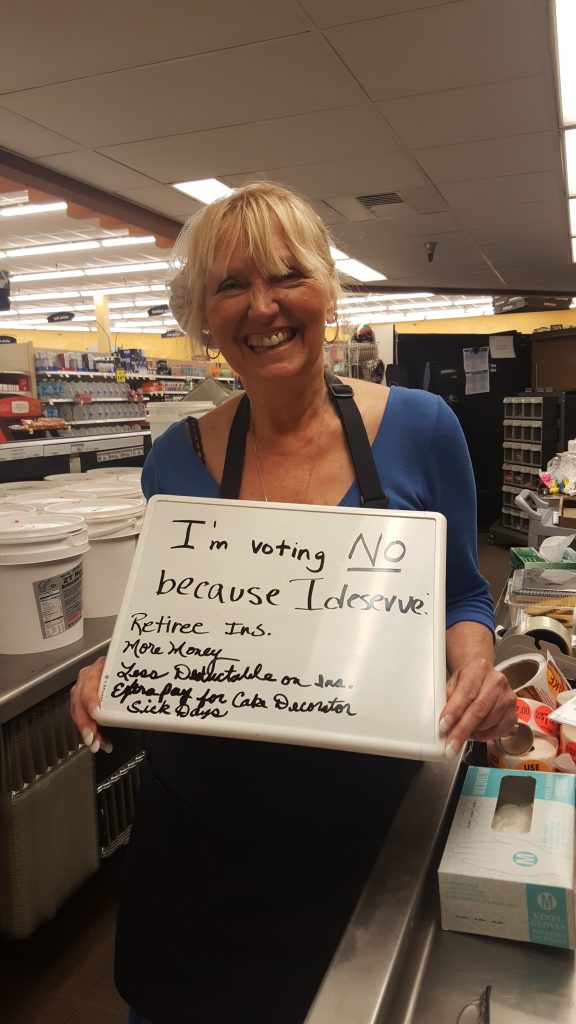 I'm voting NO
because I deserve:
Retiree Ins.
More Money
Less Deductable on Ins.
Extra Pay for Cake Decorator
Sick Days
MEDIUM
M
VINYL
GLOVES
USE